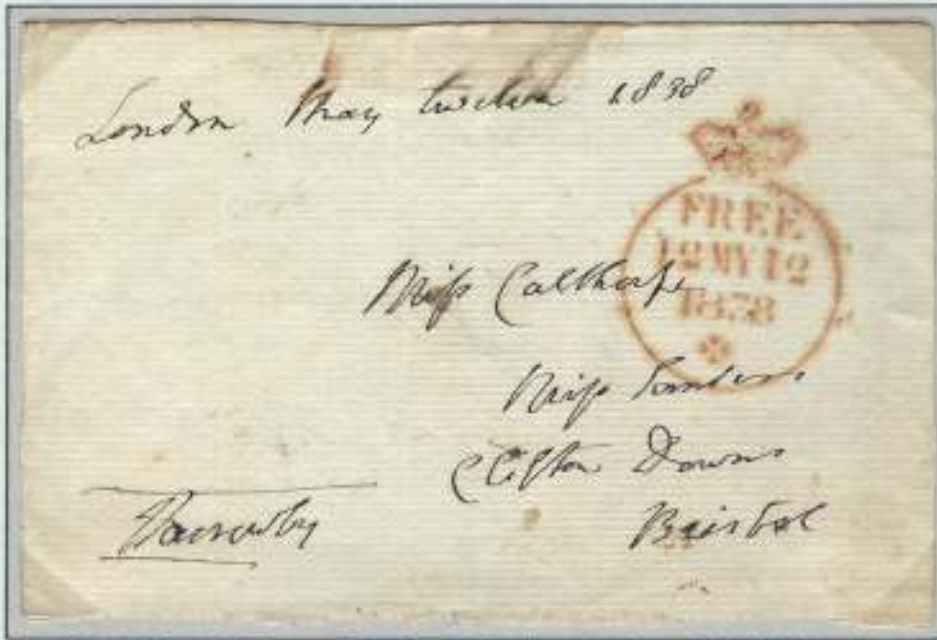 London May twelve 1838
FREE
12 MY 12
1838
Miss Calthorpe
Miss
Clifton Downs
Bristol